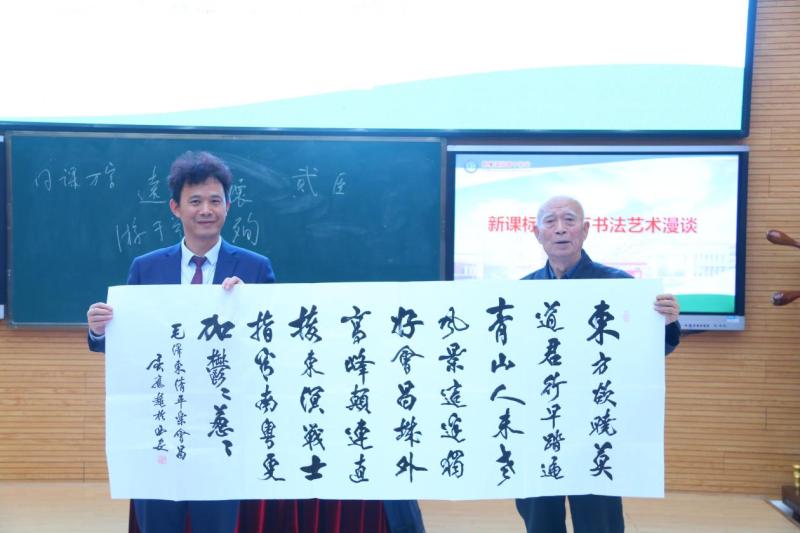 新课标 书法艺术漫谈
東方欲曉莫
道君行早踏遍
青山人未老
風景這邊獨
好會昌城外
高峰顛連直
接東溟戰士
指看南粤更
加鬱〻葱〻
毛澤東清平樂會昌
於西安